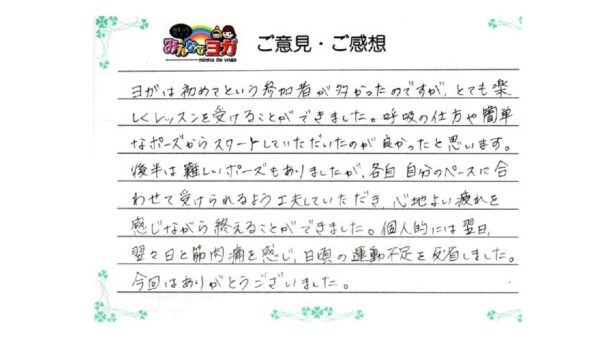 みんなでヨガ
minna de yoga
ご意見・ご感想
ヨガは初めてという参加者が多かったのですが、とても楽
しくレッスンを受けることができました。呼吸の仕方や簡単
なポーズからスタートしていただいたのが良かったと思います。
後半は難しいポーズもありましたが、各自 自分のペースに合
わせて受けられるよう工夫していただき、心地よい疲れを
感じながら終えることができました。個人的には翌日、
翌々日と筋肉痛を感じ、日頃の運動不足を反省しました。
今回はありがとうございました。